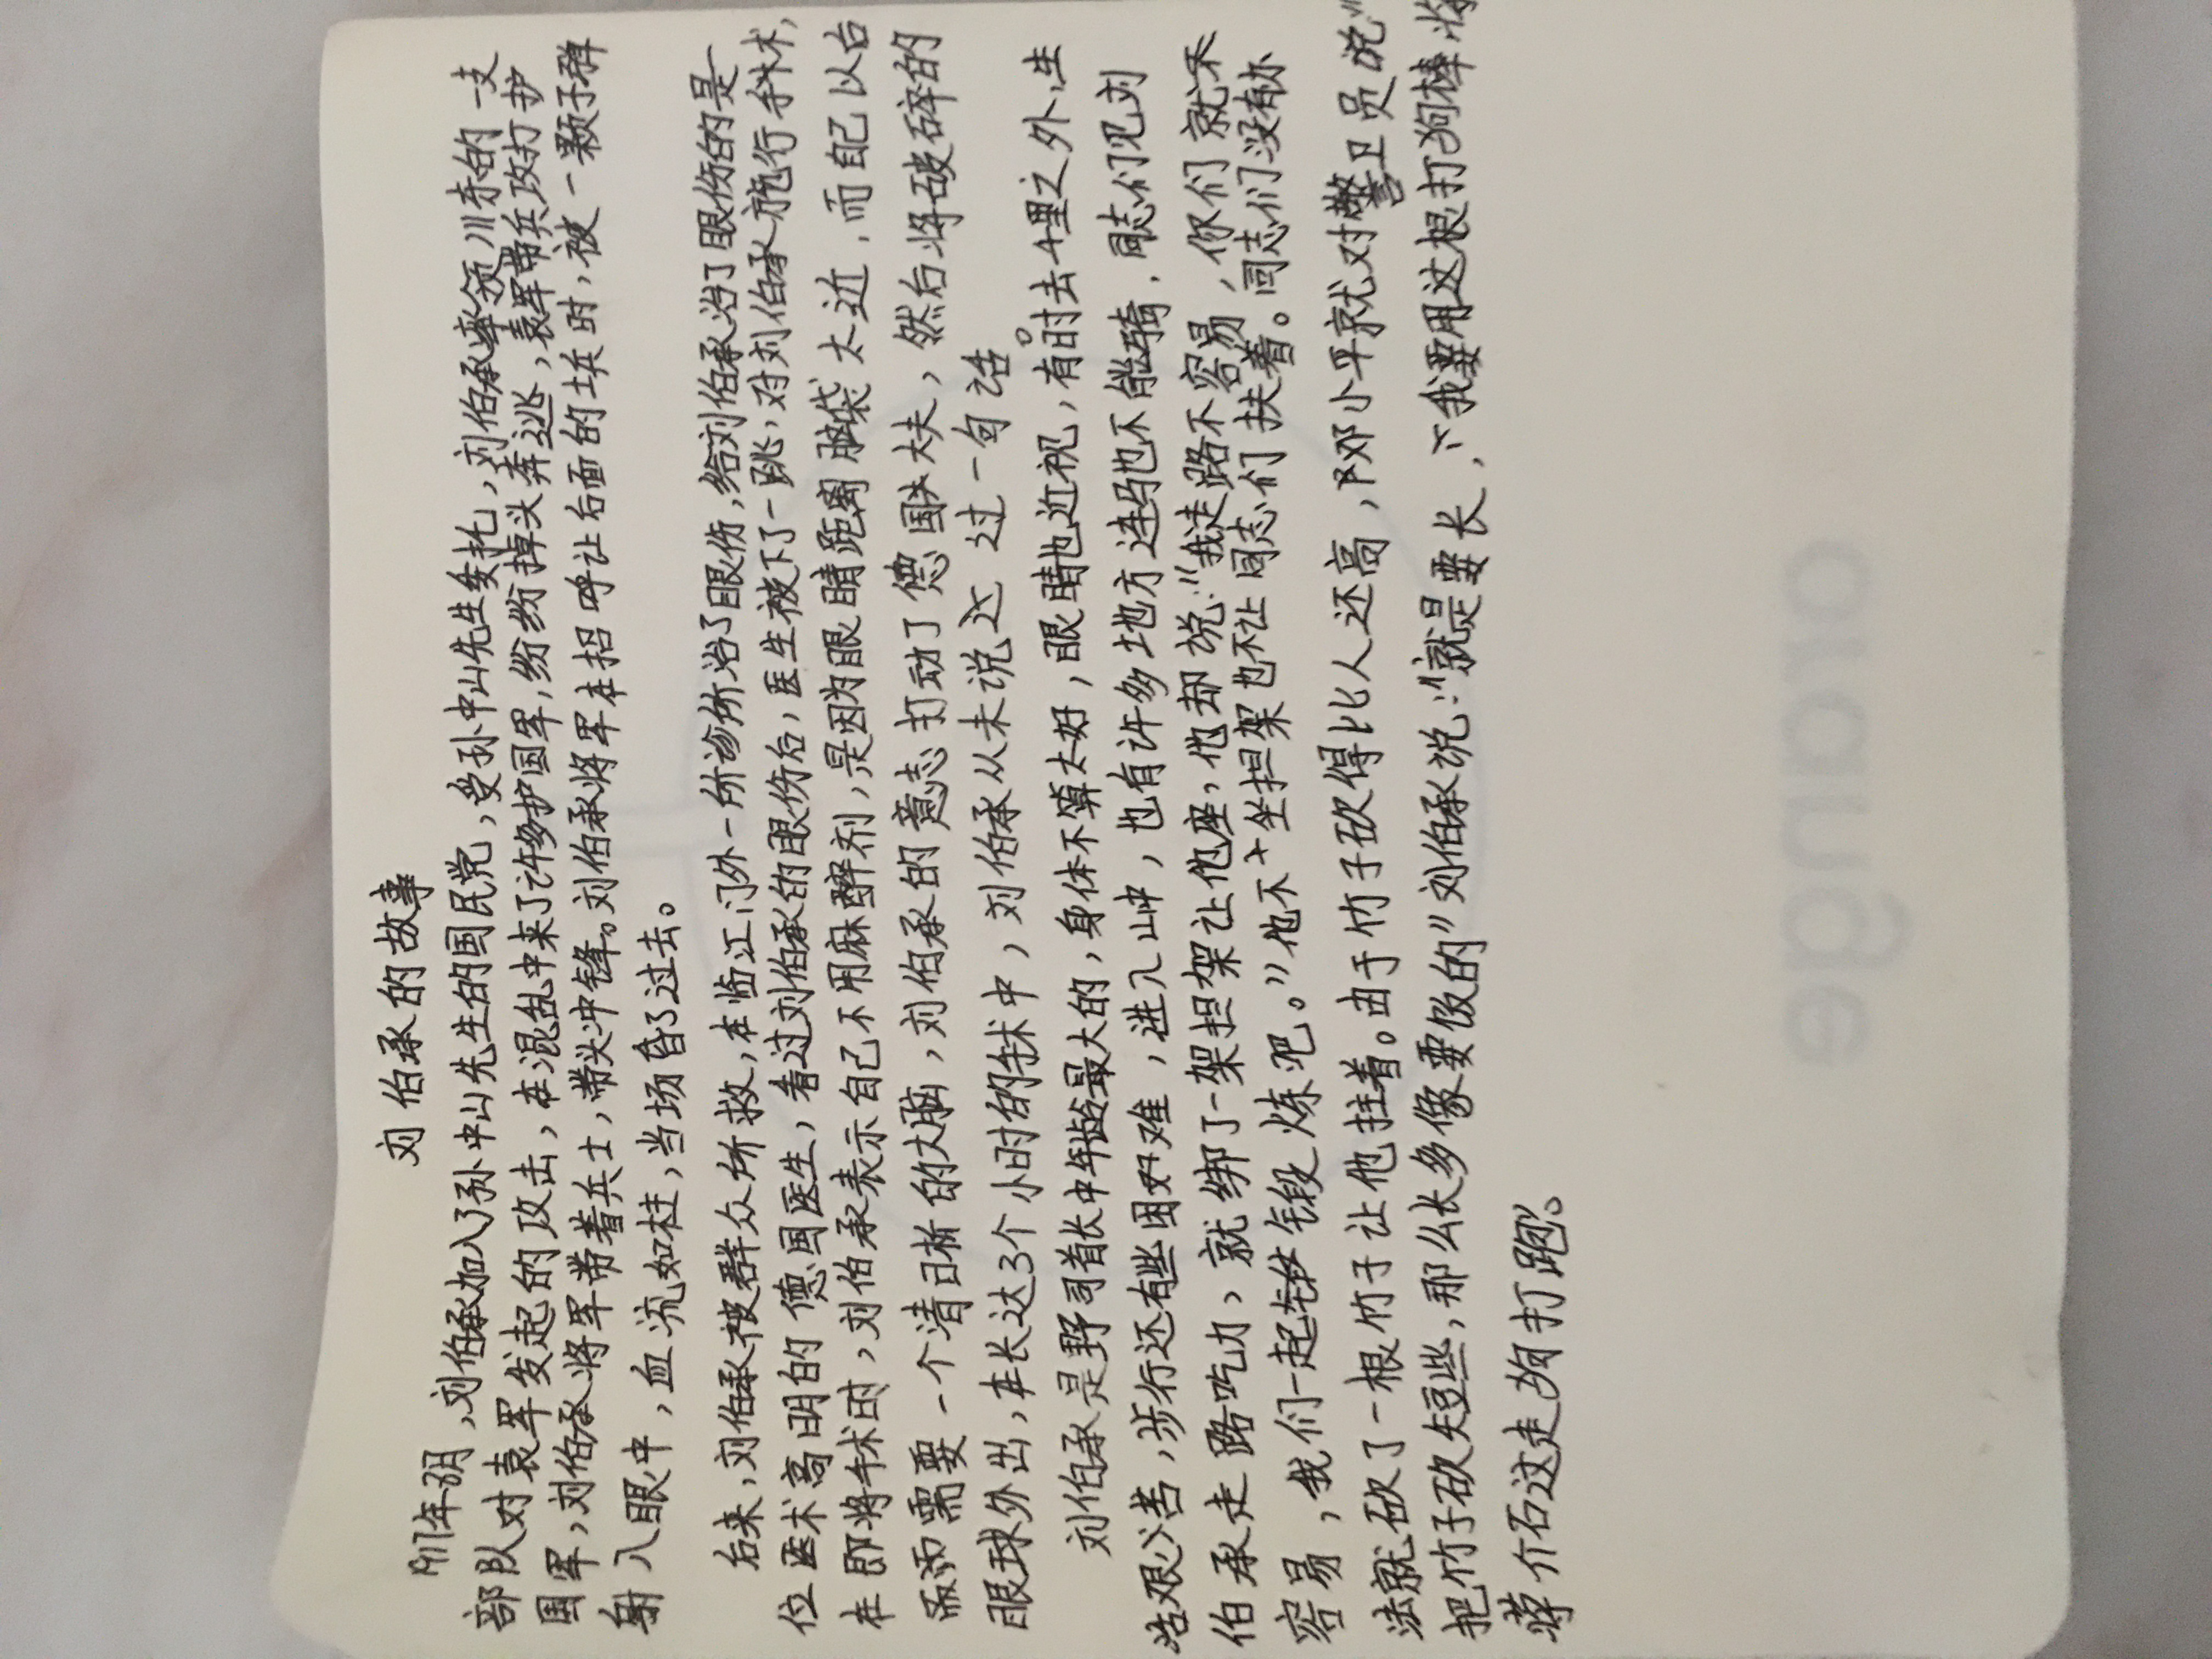 刘伯承的故事
1911年3月,刘伯承加入了孙中山先生的国民党,受孙中山先生委托,刘伯承率领川东的一支
部队对袁军发起的攻击,在混乱中来了许多护国军,纷纷掉头奔逃,袁军带兵攻打护
国军,刘伯承将军带着兵士,带头冲锋。刘伯承将军在招呼让后面的士兵时,被一颗子弹
射入眼中,血流如柱,当场昏了过去。
后来,刘伯承被群众所救,在临江门外一所诊所治了眼伤,给刘伯承治了眼伤的是一
位医术高明的德国医生,看过刘伯承的眼伤后,医生被下了一跳,对刘伯承施行手术,
在即将手术时,刘伯承表示自己不用麻醉剂,是因为眼睛距离脑袋太近,而自己以后
需要一个清晰的大脑,刘伯承的意志打动了德国大夫,然后将破碎的
眼球外出,在长达3个小时的手术中,刘伯承从未说过一句话。
刘伯承是野司首长中年龄最大的,身体不算太好,眼睛也近视,有时去十里之外,生
活艰苦,步行还有些困难,进入山中,也有许多地方连马也不能骑,同志们见刘
伯承走路吃力,就绑了一架担架让他座,他却说:"我走路不容易,你们就不
容易,我们一起锻炼吧。"他不坐担架也不让同志们扶着。同志们没有办
法就砍了一根竹子让他拄着。由于竹子砍得比人还高,邓小平就对警卫员说:"
把竹子砍短些,那么长多像要饭的"刘伯承说:"就是要长,我要用这根打狗棒将
蒋介石这走狗打跑"。
orange